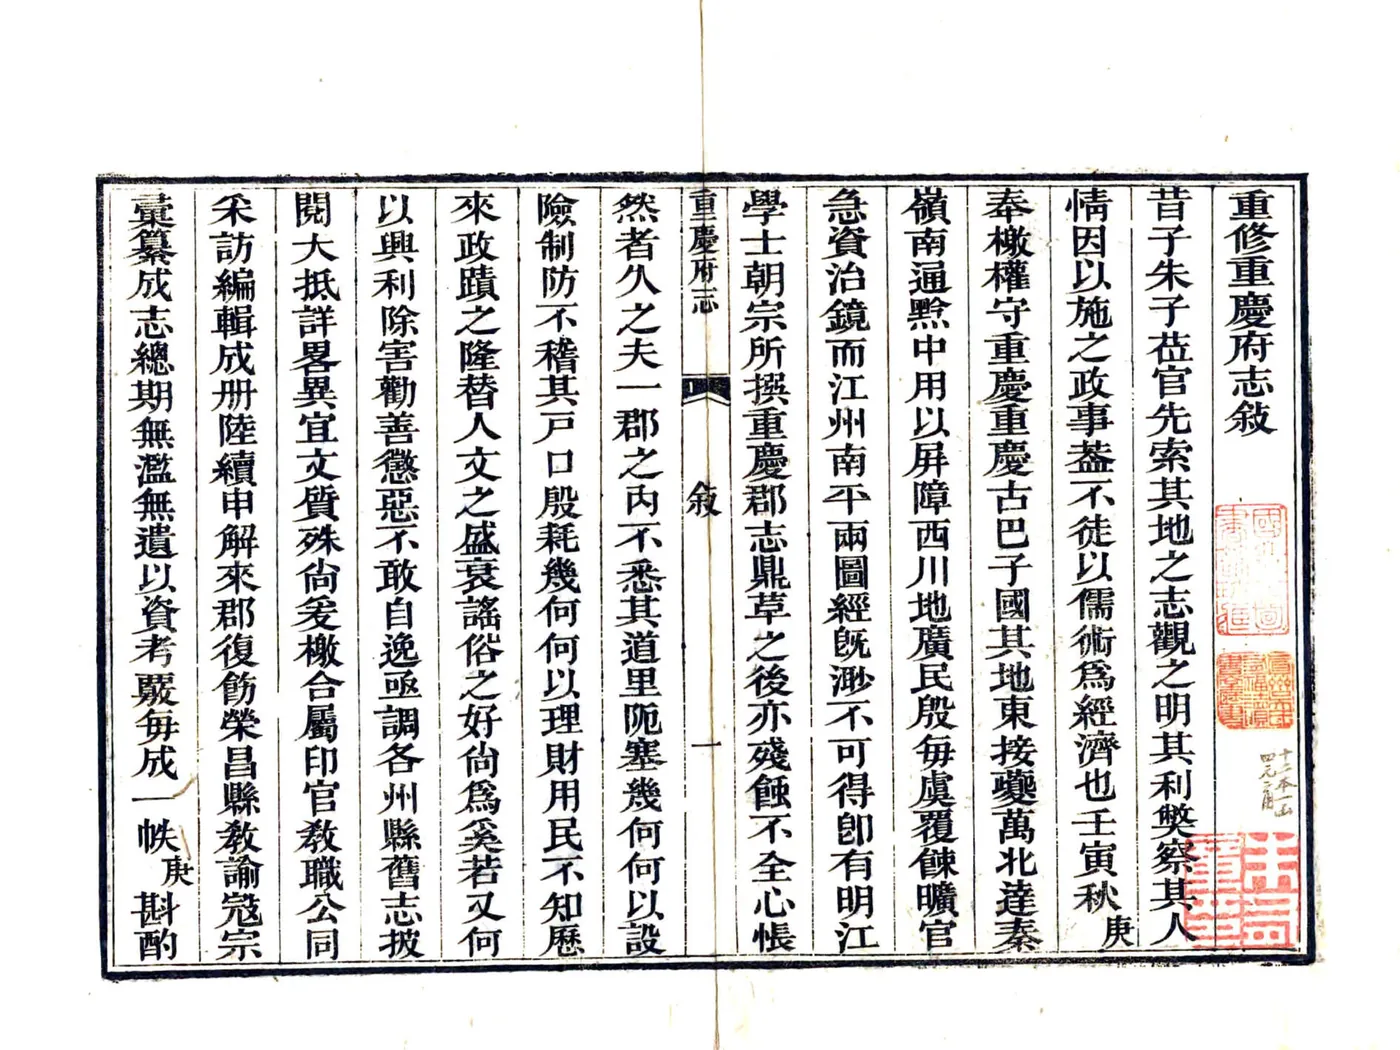 重修重慶府志敘
昔子朱子莅官先索其地之志觀之明其利獘察其人
情因以施之政事葢不徒以儒術爲經濟也壬寅秋庚
奉檄權守重慶重慶古巴子國其地東接夔萬北達秦
嶺南通黔中用以屏障西川地廣民殷每虞覆餗曠官
急資治鏡而江州南平兩圖經旣渺不可得卽有明江
學士朝宗所撰重慶郡志鼎革之後亦殘蝕不全心悵
重慶府志 敘 一
然者久之夫一郡之内不悉其道里阨塞幾何何以設
險制防不稽其戸口殷耗幾何何以理財用民不知歷
來政蹟之隆替人文之盛衰謠俗之好尚爲奚若又何
以興利除害勸善懲惡不敢自逸亟調各州縣舊志披
閱大抵詳畧異宜文質殊尙爰檄合屬印官教職公同
采訪編輯成册陸續申解來郡復飭榮昌縣教諭寇宗
彚纂成志總期無濫無遺以資考覈每成一帙庚斟酌